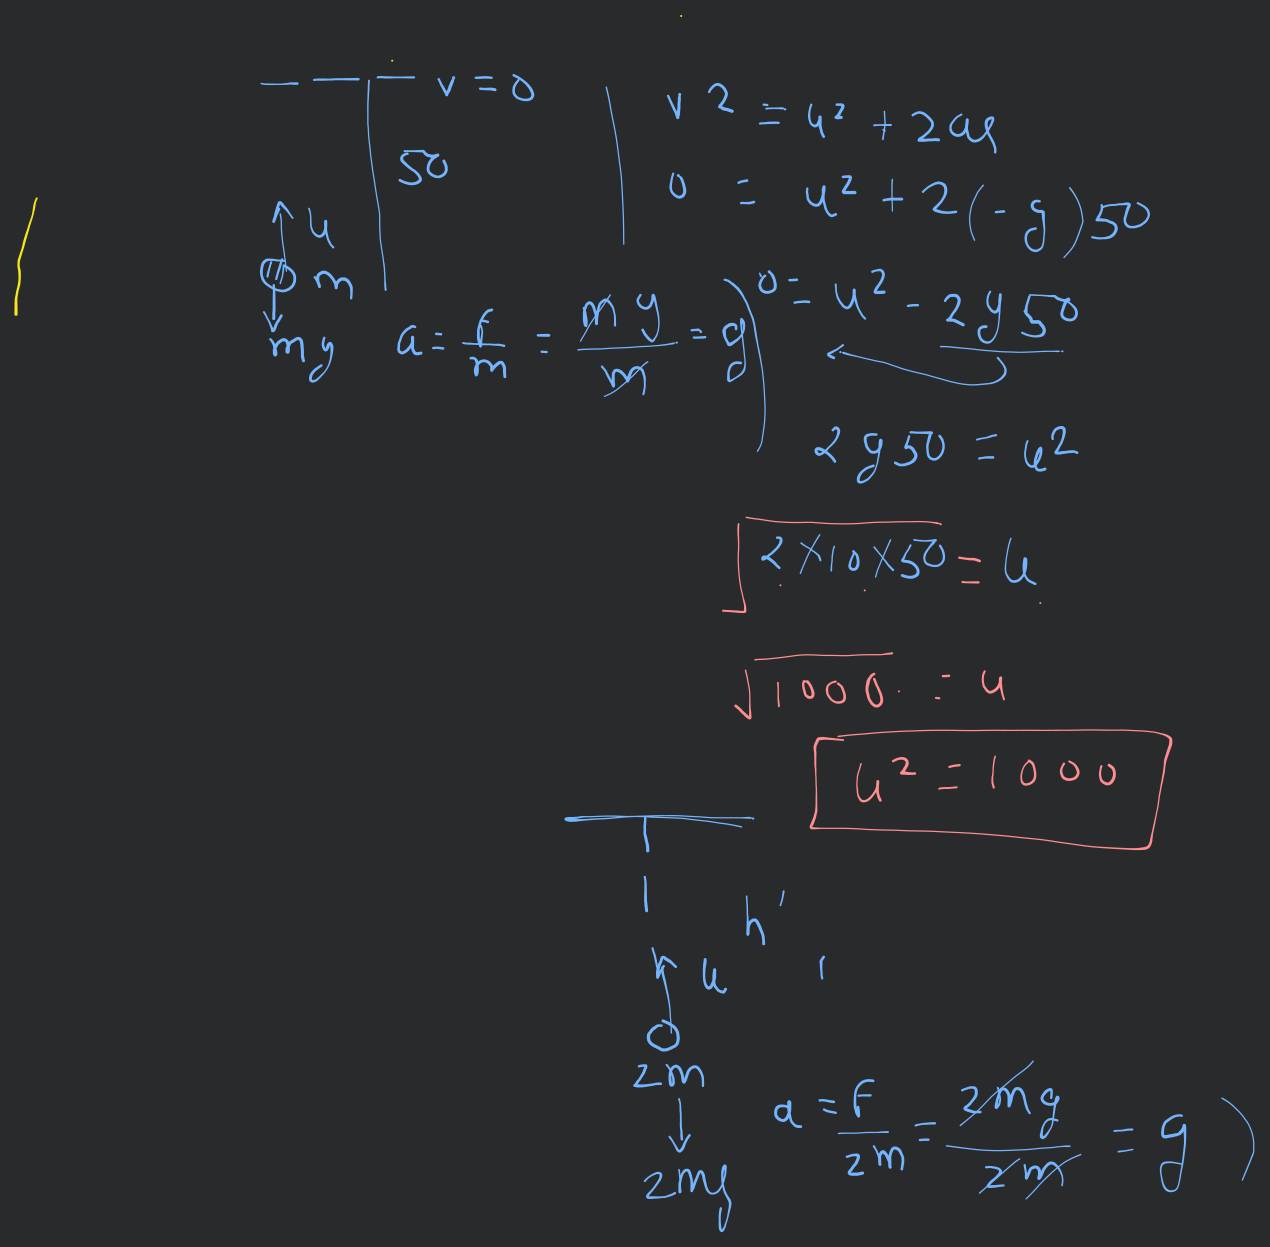 v = 0
50
u
m
mg
a = f/m = mg/m = g
v2 = u² + 2as
0 = u² + 2(-g)50
0 = u² - 2g50
2g50 = u²
√2×10×50 = u
√1000 = u
u² = 1000
h'
u
2m
2mg
a = F/2m = 2mg/2m = g